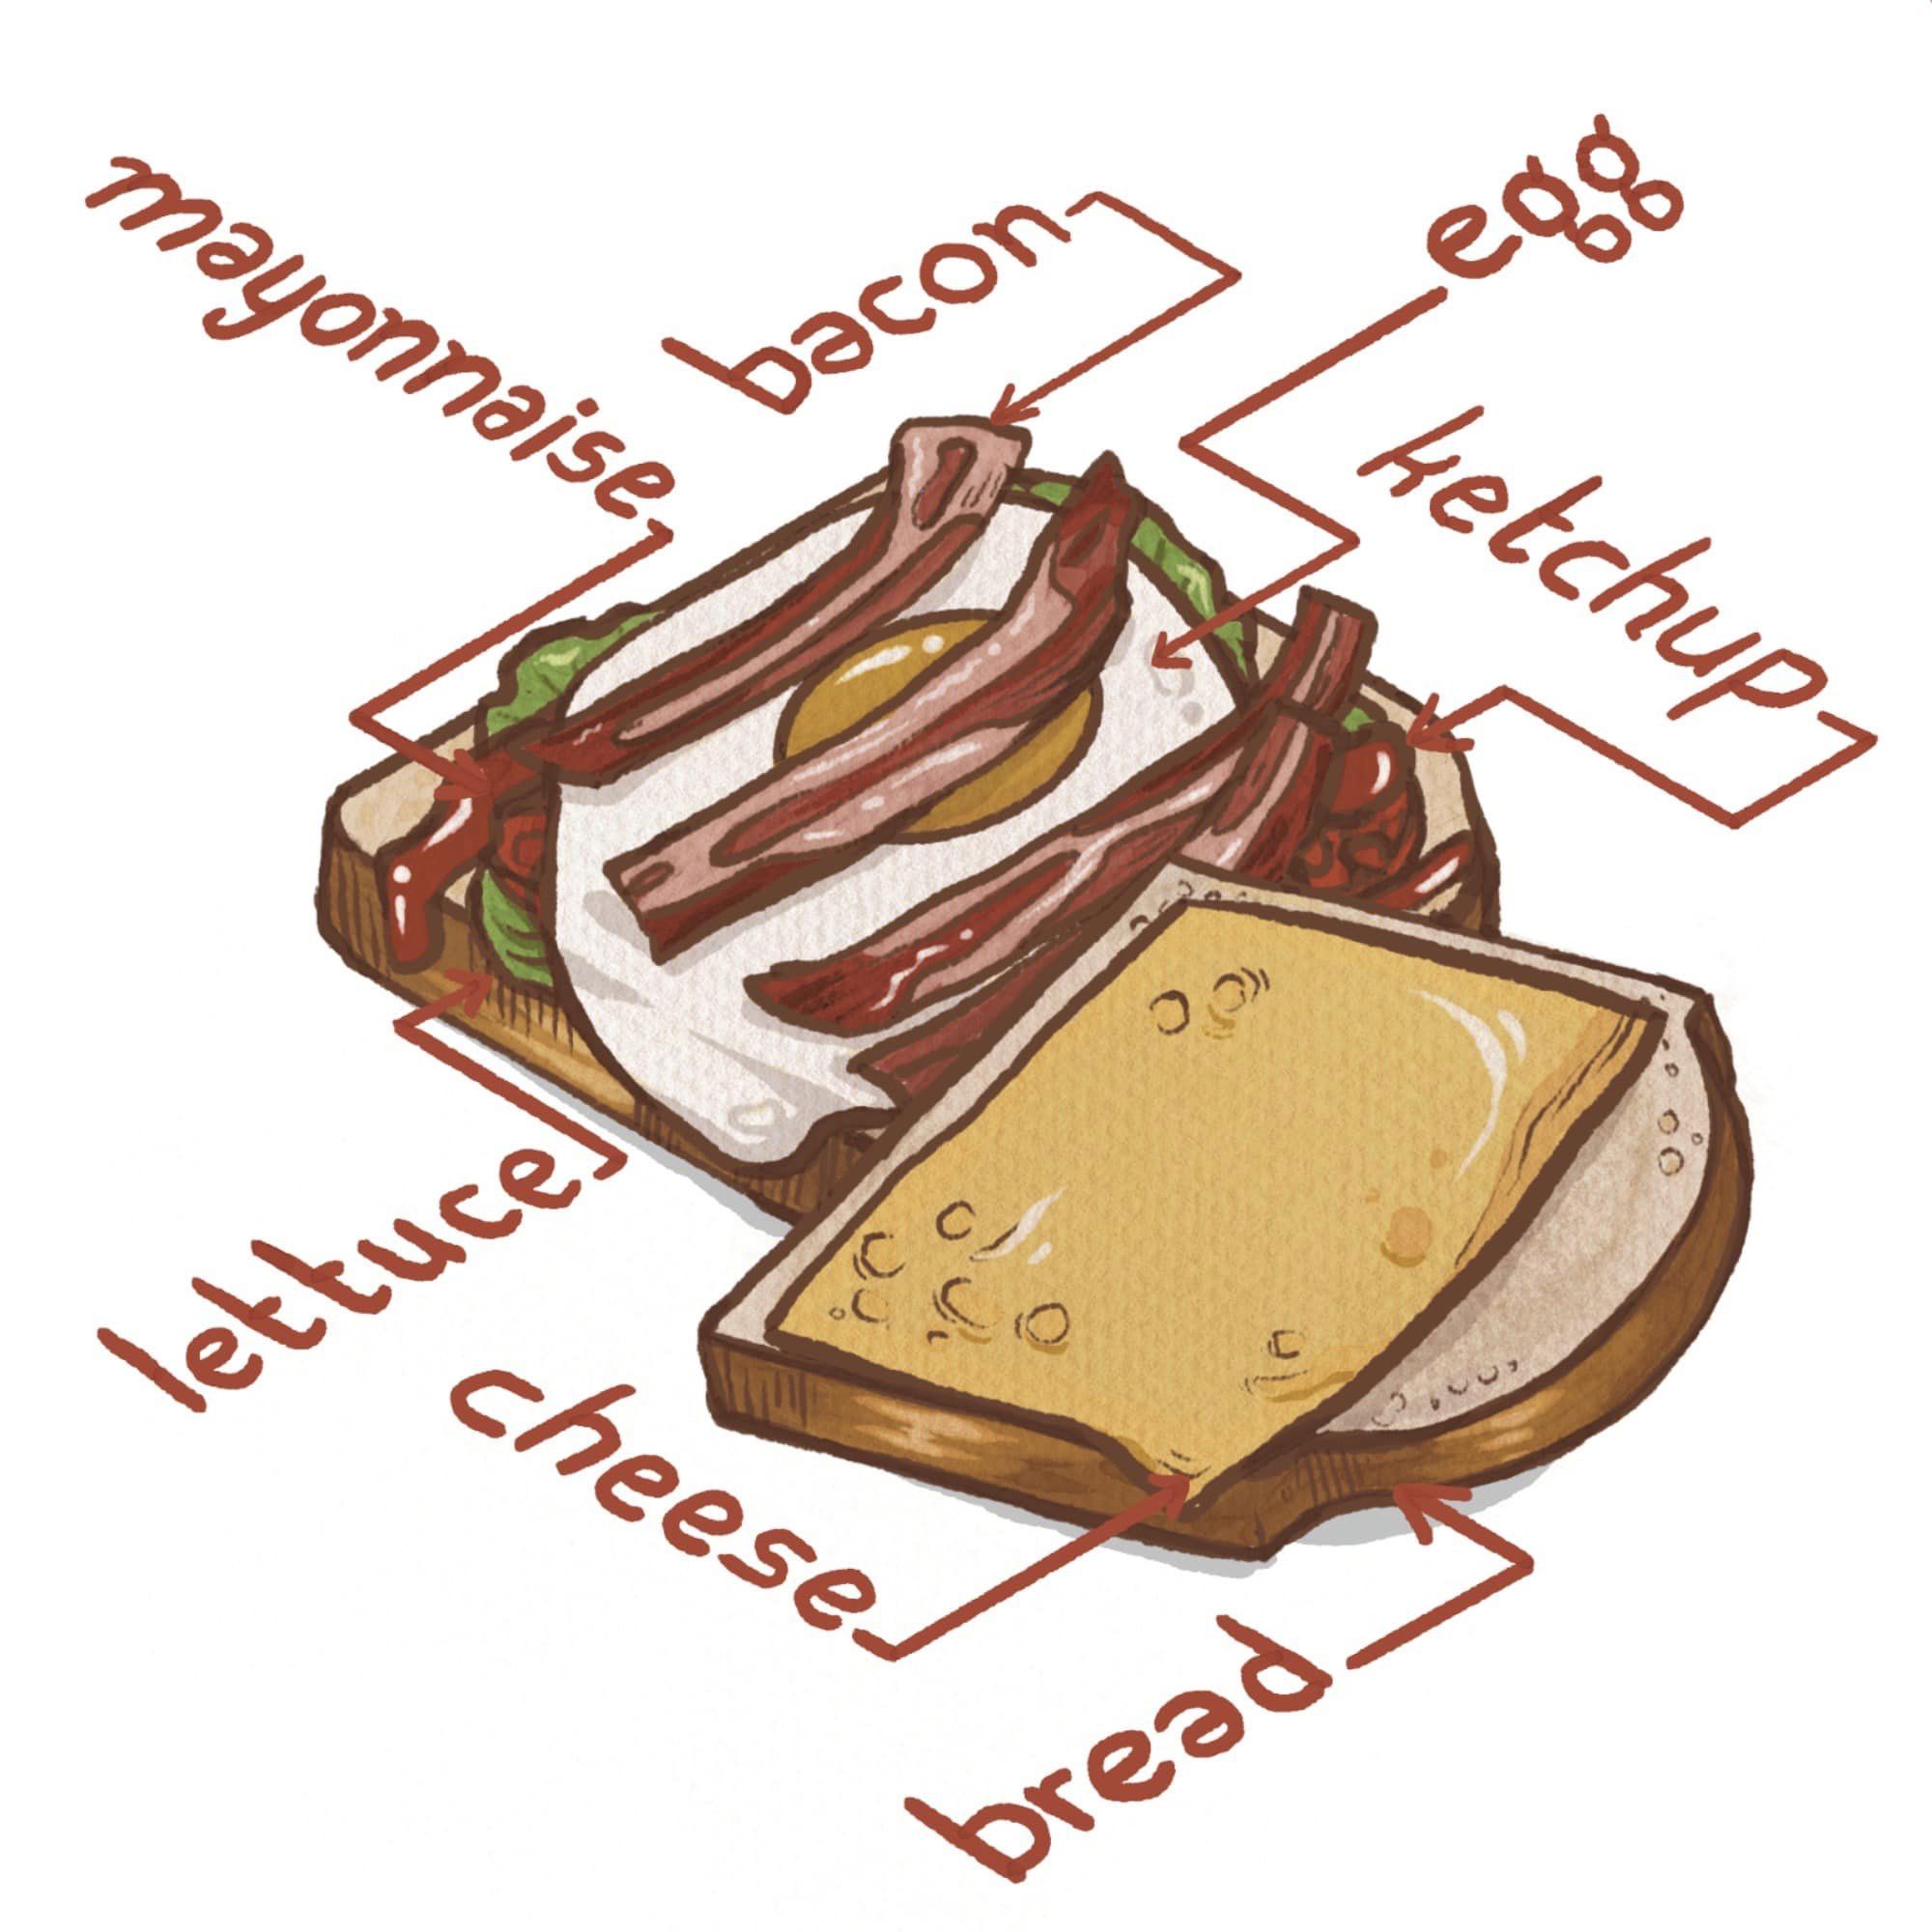 mayonnaise
bacon
egg
ketchup
lettuce
cheese
bread